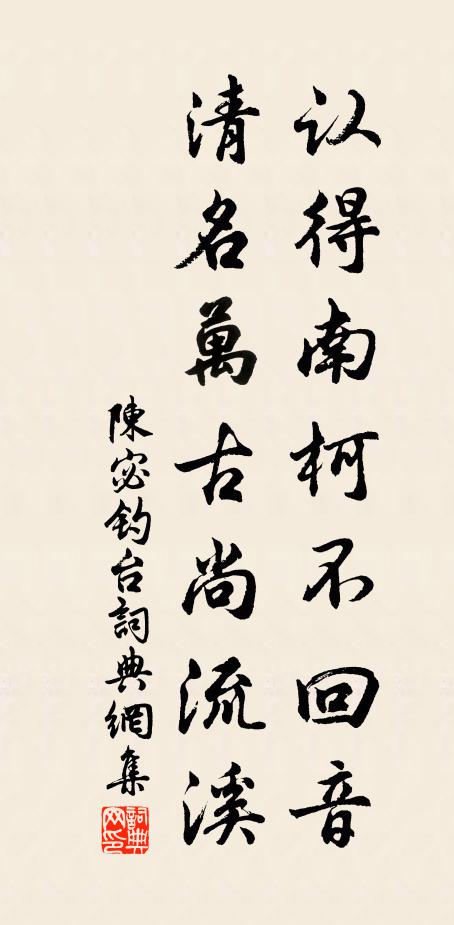 认得南柯不回音
清名萬古尚流溪
陳宓钓台詞典網集
詞典网印